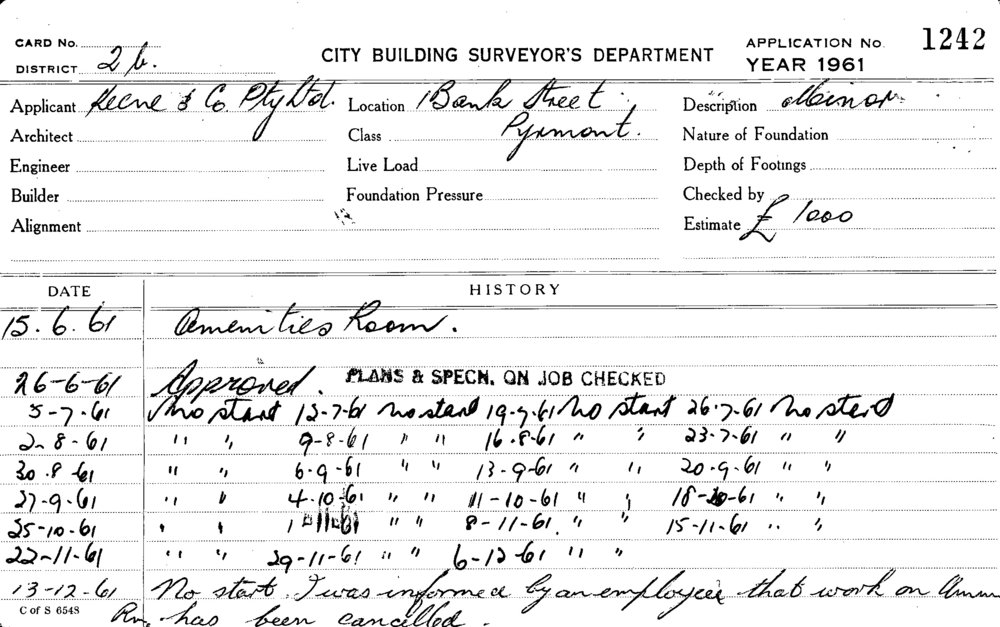 CARD No. CITY BUILDING SURVEYOR'S DEPARTMENT APPLICATION No. 1242
DISTRICT 2b. YEAR 1961
Applicant Keene & Co Pty Ltd. Location Bank Street Description Minor
Architect Class Pyrmont. Nature of Foundation
Engineer Live Load Depth of Footings
Builder Foundation Pressure Checked by
Alignment Estimate £ 1000
DATE HISTORY
15.6.61 Amenities Room.
26-6-61 Approved. PLANS & SPECN. ON JOB CHECKED
5-7-61 No start 12-7-61 No start 19-7-61 No start 26-7-61 No start
2-8-61 " " 9-8-61 " " 16.8-61 " " 23-7-61 " "
30.8.61 " " 6-9-61 " " 13-9-61 " " 20-9-61 " "
27-9-61 " " 4-10-61 " " 11-10-61 " " 18-10-61 " "
25-10-61 " " 1-11-61 " " 8-11-61 " " 15-11-61 " "
22-11-61 " " 29-11-61 " " 6-12-61 " "
13-12-61 No start. I was informed by an employee that work on Amm
C of S 6548 Rm. has been cancelled.